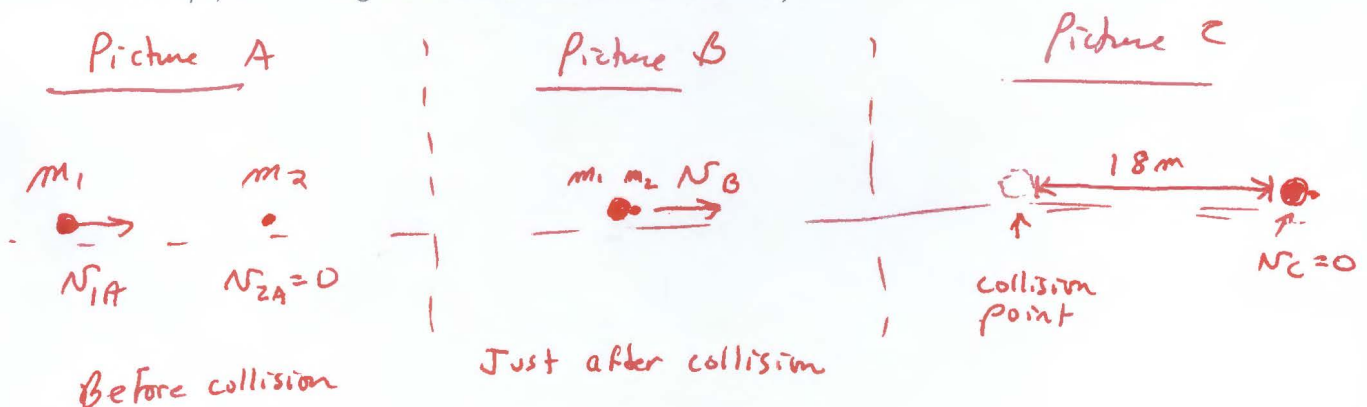 Picture A
Picture B
Picture C
m₁
m₂
m₁ m₂ v_B
18 m
v₁A
v₂A = 0
v_C = 0
collision
point
Before collision
Just after collision